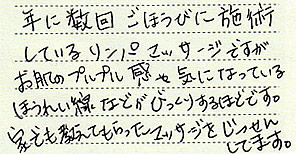 年に数回ごほうびに施術
しているリンパマッサージですが
お肌のプルプル感や気になっている
ほうれい線などがびっくりするほどです。
家でも教えてもらったマッサージをじっせん
してます。